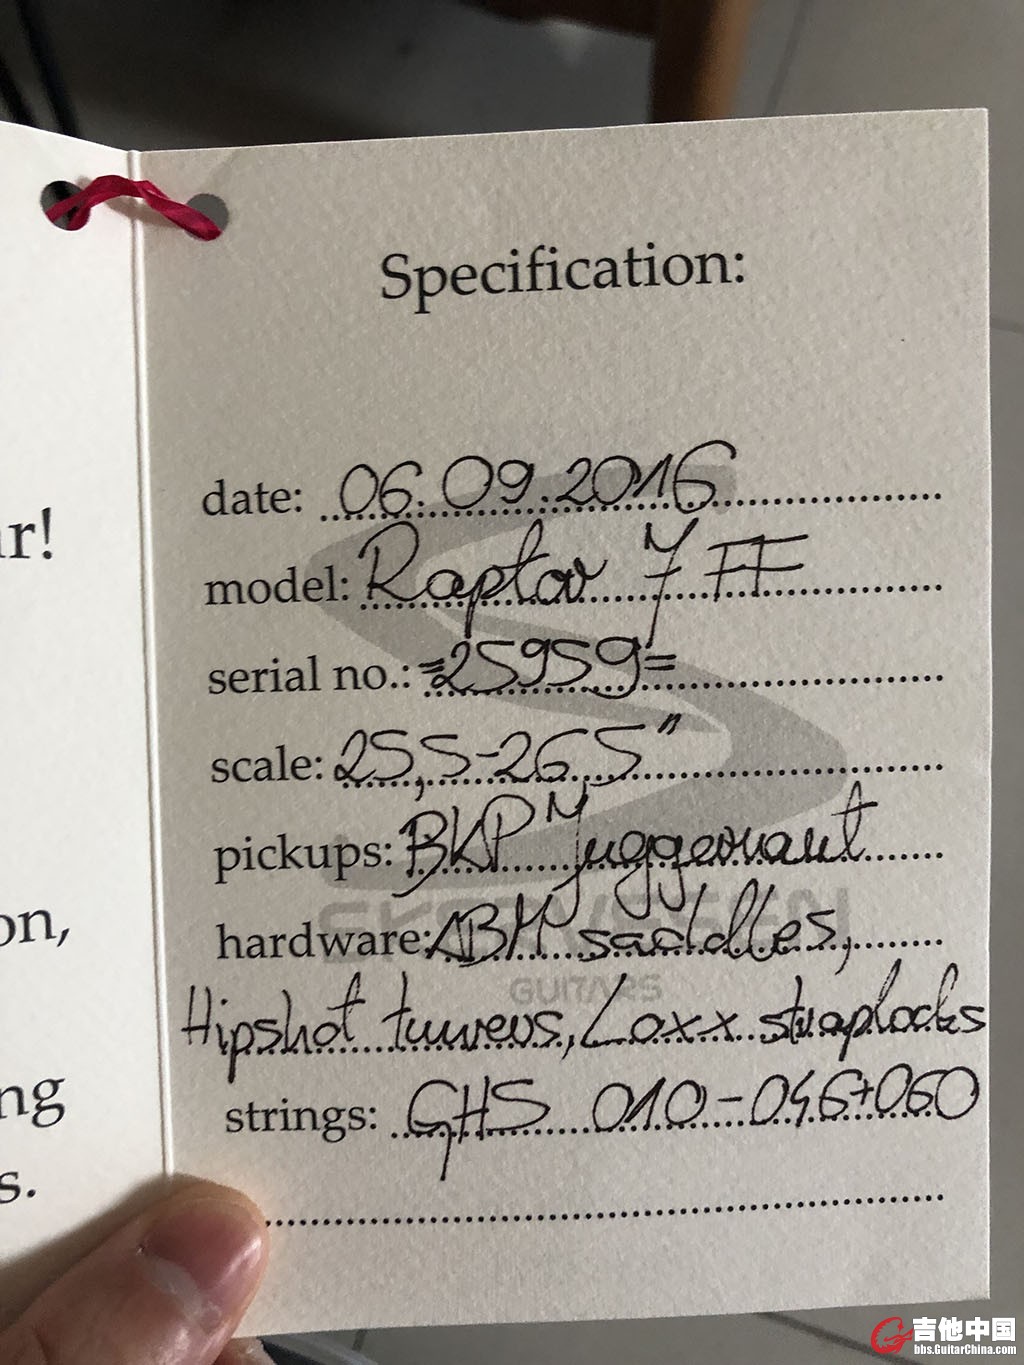 Specification:
date: 06.09.2016
model: Raptor 7 FF
serial no.: =25959=
scale: 25,5-26,5"
pickups: BKP Juggernaut
hardware: ABM saddles,
Hipshot tuners, Loxx straplocks
strings: GHS 010-046+060
GUITARS
r!
on,
ng
s.
吉他中国
bbs.GuitarChina.com